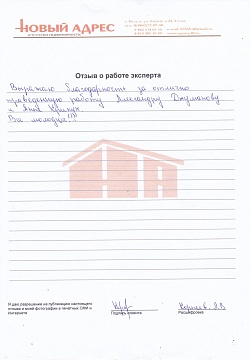 НОВЫЙ АДРЕС
АГЕНТСТВО НЕДВИЖИМОСТИ
Отзыв о работе эксперта
Выражаю благодарность за отлично
проведенную работу Александру Джуманову
и Анне
Вы молодцы!!!
НА
Я даю разрешение на публикацию настоящего
отзыва и моей фотографии в печатных СМИ и
Интернете
Подпись клиента
Расшифровка